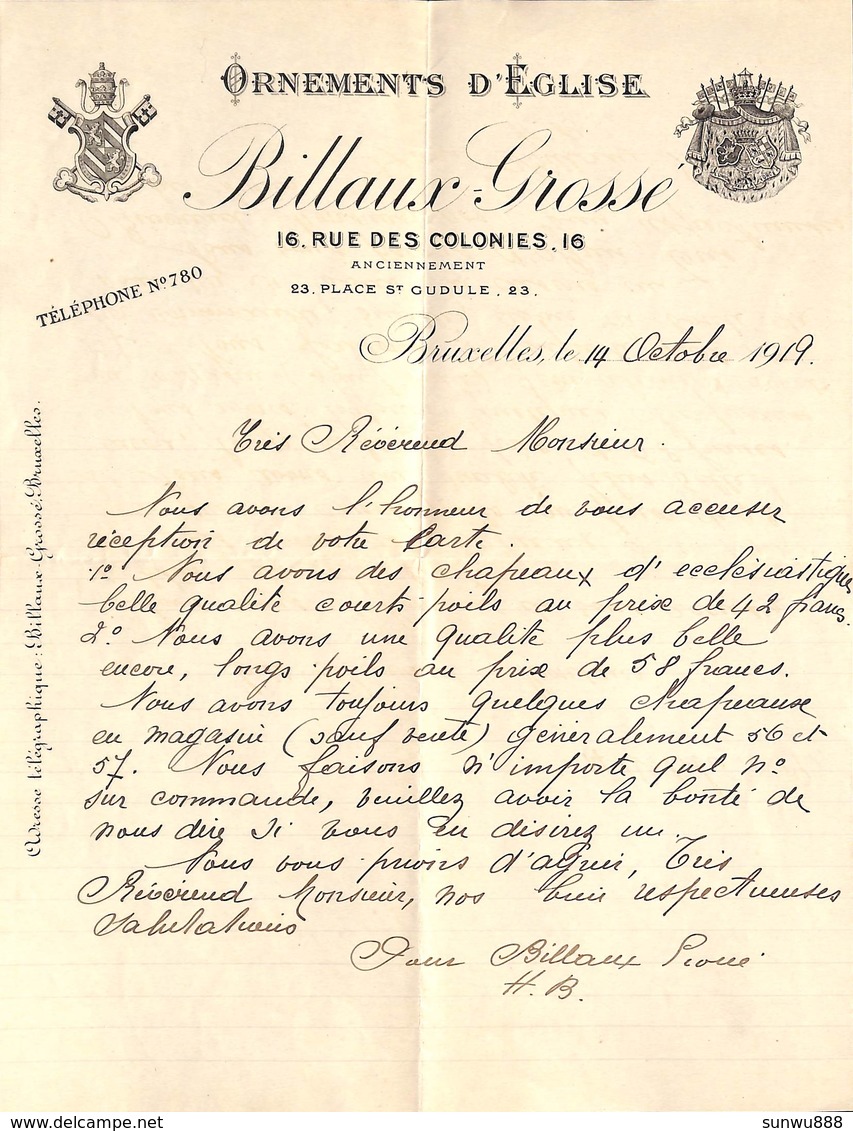 ORNEMENTS D'EGLISE
Billaux-Grossé
16. RUE DES COLONIES. 16
ANCIENNEMENT
23. PLACE ST GUDULE. 23.
TÉLÉPHONE No 780
Bruxelles, le 14 Octobre 1919.
Adresse télégraphique: Billaux-Grossé, Bruxelles.
Très Révérend Monsieur.
Nous avons l'honneur de vous accuser
réception de votre Carte.
1o Nous avons des chapeaux d'ecclésiastiques
belle qualité courts-poils au prix de 42 francs.
2o Nous avons une qualité plus belle
encore, longs-poils au prix de 58 francs.
Nous avons toujours quelques chapeaux
en magasin (sauf vente) généralement 56 et
57. Nous faisons n'importe quel No
sur commande, veuillez avoir la bonté de
nous dire si vous en désirez un.
Nous vous prions d'agréer, Très
Révérend Monsieur, nos bien respectueuses
salutations
Pour Billaux
H. B.
sunwu888